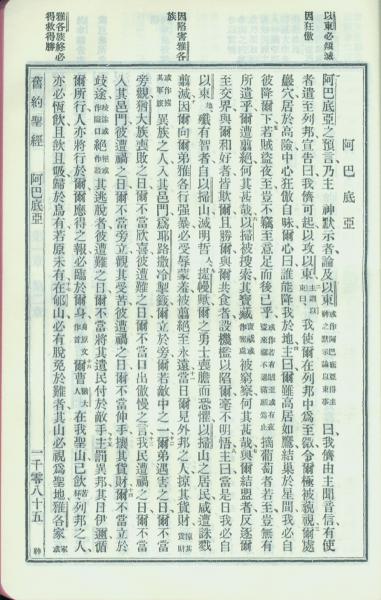 以東必傾滅
因狂傲
因陷害雅各
族
雅各族終必
得救得勝
阿巴底亞
阿巴底亞之預言乃主 神默示者論及以東 曰我儕由主聞音信有使
者遣至列邦宣告曰我儕可起以攻以東 我使爾在列邦中為至微令爾極被藐視爾處
巖穴居於高險中心狂傲自昧爾心曰誰能降我於地主曰爾雖高居如鷹結巢於星間我必自
彼降爾下若賊盜夜至豈不竊至意足而後已乎 摘葡萄者若至豈無有
所遺乎爾遭翦絕何其甚哉以掃被搜索其寶藏 被窮察何其甚哉與爾結盟者反逐爾
主交界與爾和好者欺爾且勝爾與爾共食者設機檻以陷爾毫不明悟主曰當是日我必自
以東殲有智者自以掃山滅明哲人提幔歟爾之勇士喪膽而恐懼以掃山之居民咸遭誅戮
翦滅因爾向爾弟雅各行强暴必受辱蒙羞被翦絕至永遠當日爾見外邦之人掠其貨財
異族之人入其邑門為耶路撒冷掣籤爾立於旁爾若敵中之一爾弟遇害之日爾不當
旁觀猶大族喪敗之日爾不當欣喜彼遭難之日爾不當口出傲慢之言我民遭禍之日爾不當
入其邑門彼遭禍之日爾不當旁立觀其受苦彼遭禍之日爾不當伸手攘其貨財爾不當立於
歧途 絕其逃脫者彼遭難之日爾不當將其遺民付於敵手主罰異邦其日伊邇循
爾所行人亦將行於爾爾應得之報必臨於爾身 爾曹 在我聖山已飲 列邦之人
亦必恆飲且飲且吸歸於烏有若原未有在郇山必有脫免於難者其山必視為聖地雅各家
舊約聖經 阿巴底亞 一千零八十五